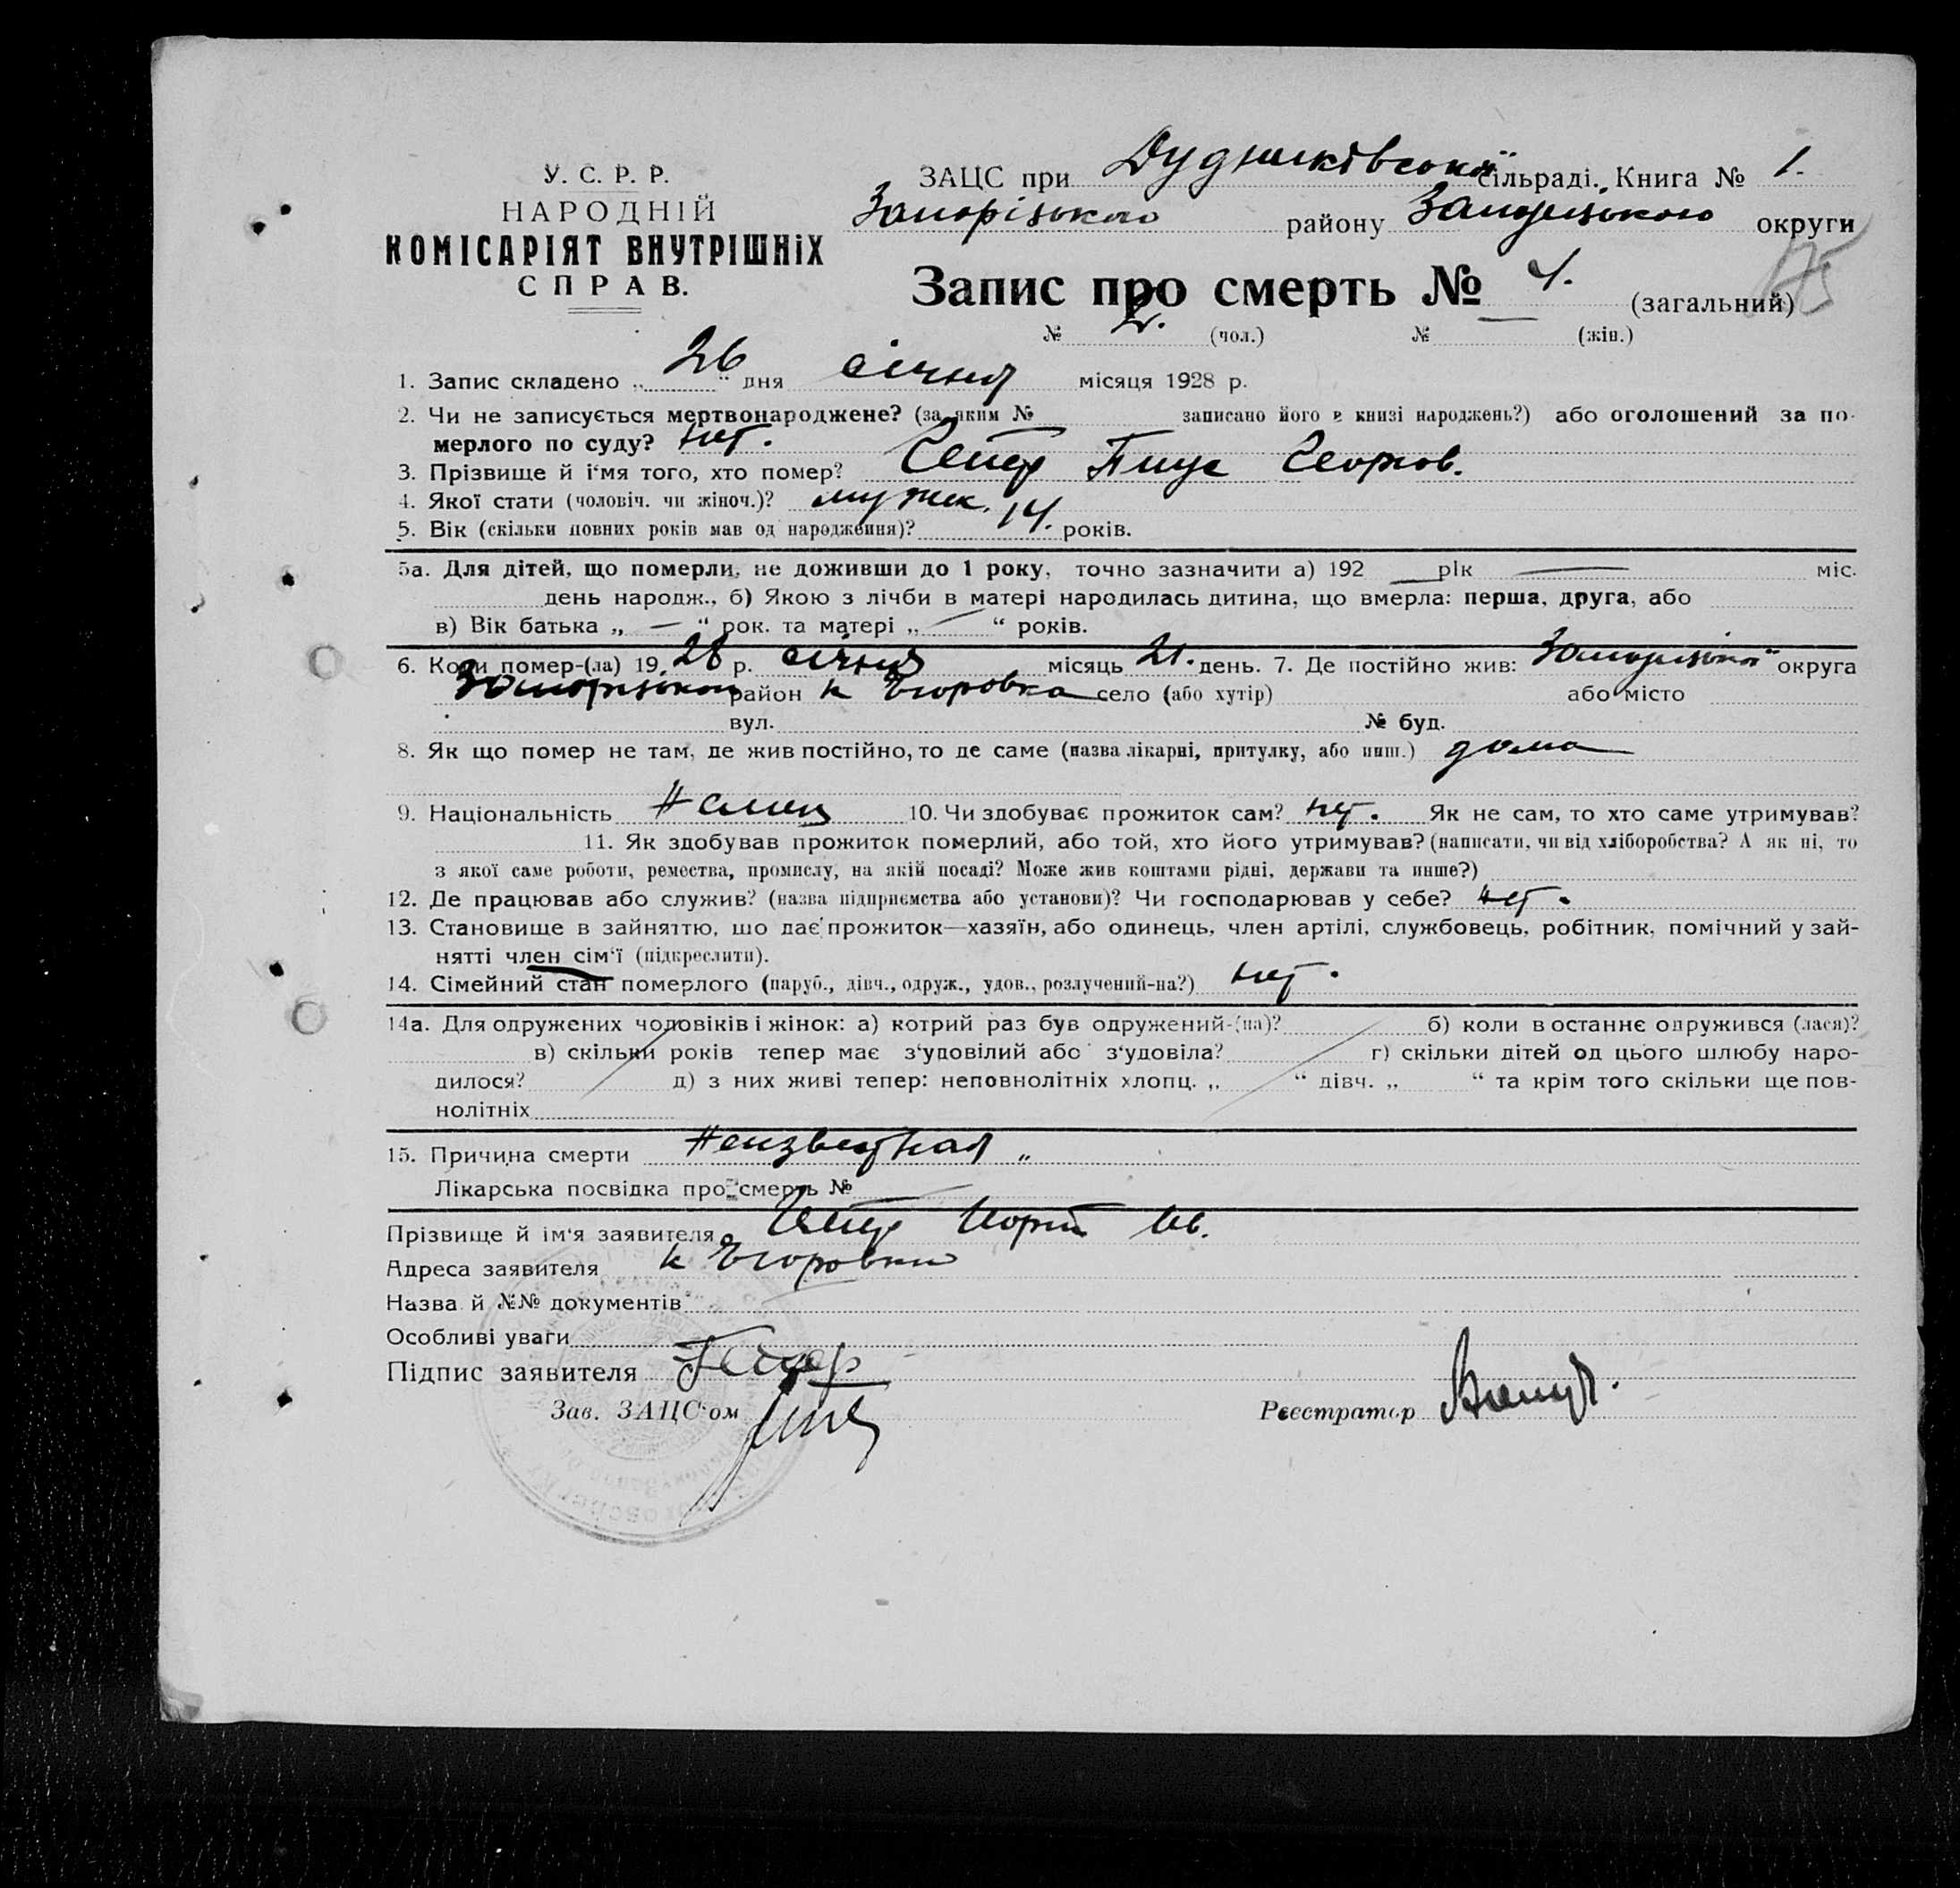 У. С. Р. Р.
НАРОДНІЙ
КОМІСАРІЯТ ВНУТРІШНІХ
СПРАВ.
ЗАЦС при сільраді. Книга № 1.
Запорізького району Запорізького округи
175
Запис про смерть № 4. (загальний)
№ 2. (чол.) № — (жін.)
1. Запис складено „26" дня січня місяця 1928 р.
2. Чи не записується мертвонароджене? (за яким № записано його в книзі народжень?) або оголошений за по-
мерлого по суду? нет.
3. Прізвище й і'мя того, хто помер?
4. Якої стати (чоловіч. чи жіноч.)? мужск.
5. Вік (скільки повних років мав од народження)? 14. років.
5а. Для дітей, що померли, не доживши до 1 року, точно зазначити а) 192 — рік — міс.
день народж., б) Якою з лічби в матері народилась дитина, що вмерла: перша, друга, або
в) Вік батька „ — " рок. та матері „ — " років.
6. Коли помер-(ла) 1928 р. січня місяць 21. день. 7. Де постійно жив: Запорізької округа
район к Егоровка село (або хутір) або місто
вул. № буд.
8. Як що помер не там, де жив постійно, то де саме (назва лікарні, притулку, або инш.) дома
9. Національність Немец 10. Чи здобуває прожиток сам? нет. Як не сам, то хто саме утримував?
11. Як здобував прожиток померлий, або той, хто його утримував? (написати, чи від хліборобства? А як ні, то
з якої саме роботи, ремества, промислу, на якій посаді? Може жив коштами рідні, держави та инше?)
12. Де працював або служив? (назва підприємства або установи)? Чи господарював у себе? нет.
13. Становище в зайняттю, що дає прожиток—хазяїн, або одинець, член артілі, службовець, робітник, помічний у зай-
нятті член сім'ї (підкреслити).
14. Сімейний стан померлого (паруб., дівч., одруж., удов., розлучений-на?) нет.
14а. Для одружених чоловіків і жінок: а) котрий раз був одружений-(на)? б) коли в останнє одружився (лася)?
в) скільки років тепер має з'удовілий або з'удовіла? г) скільки дітей од цього шлюбу наро-
дилося? д) з них живі тепер: неповнолітніх хлопц. „ " дівч. „ " та крім того скільки ще пов-
нолітніх
15. Причина смерти Неизвестная
Лікарська посвідка про смерть №
Прізвище й ім'я заявителя
Адреса заявителя к Егоровки
Назва й №№ документів
Особливі уваги
Підпис заявителя
Зав. ЗАЦС'ом
Реєстратор